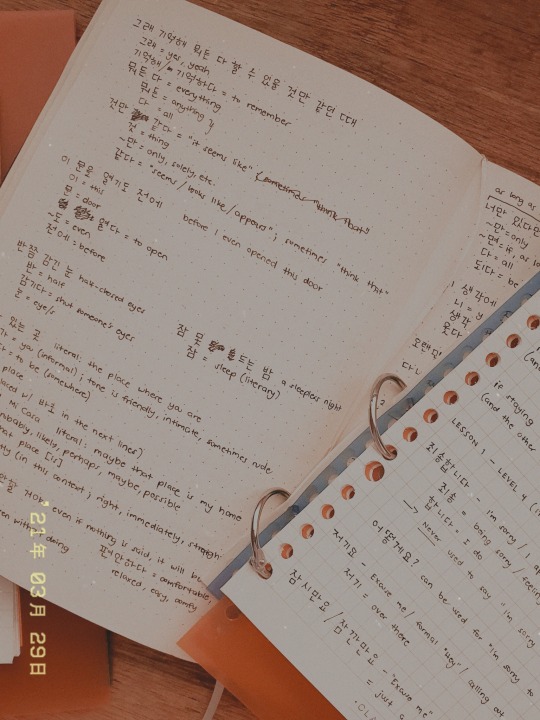 그래 기억해 뭐든 다 할 수 있을 것만 같던 때
그래 = yes, yeah
기억해/ 기억하다 = to remember
뭐든 다 = everything
뭐든 = anything }
다 = all
것만 같다 = "it seems like"
것 = thing
~만 = only, solely, etc.
같다 = "seems / looks like / appears"; sometimes "think that"
이 문을 열기도 전에 before I even opened this door
이 = this
문 = door
열다 = to open
~도 = even
전에 = before
반쯤 감긴 눈 half-closed eyes
반 = half
감기다 = shut someone's eyes
눈 = eye/s
잠 못 드는 밤 a sleepless night
잠 = sleep (literary)
있는 곳 literal: the place where you are
you (informal); tone is friendly, intimate, sometimes rude
= to be (somewhere)
place
w/ 바로 in the next lines)
Mi Casa literal: maybe that place is my home
probably, likely, perhaps, maybe, possible
that place [is]
(in this context); right, immediately, straight
even if nothing is said, it will be
doing
편안하다 = comfortable,
relaxed, easy, comfy
as long as
너만 있다면
~만 = only
~면 = if, as
다 = all
되다 = be
생각에
니 = y
생각
오랜만
다시
2
(and
if staying
(and the other
LESSON 1 - LEVEL 4
죄송합니다 - i'm sorry / I
죄송 = being sorry / feeling
합니다 = I do
→ Never used to say "i'm sorry
어떻게요? can be used for "i'm sorry to
저기요 - Excuse me / formal "Hey" / calling out
저기 = over there
잠시만요 / 잠깐만요 - "Excuse me"
= just
'21年 03月 29日